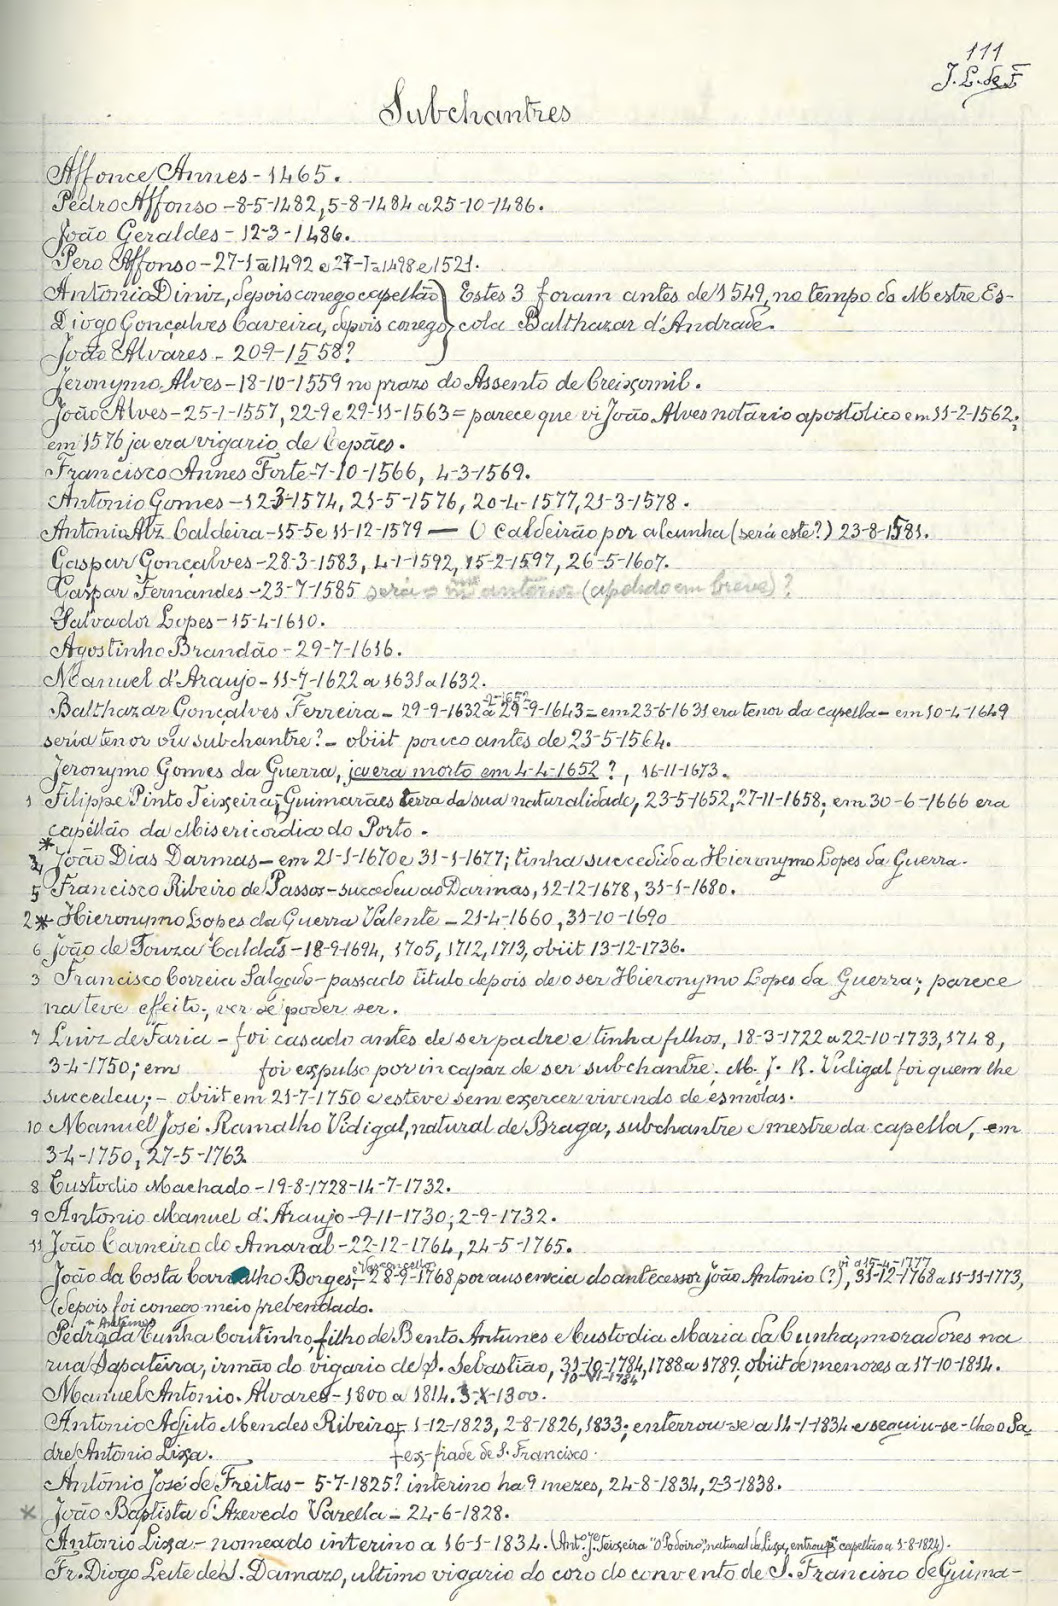 111
J. L. de F
Subchantres
Affonce Annes - 1465.
Pedro Affonso - 8-5-1482, 5-8-1484 a 25-10-1486.
João Geraldes - 12-3-1486.
Pero Affonso - 27-1 a 1492 e 27-1 a 1498 e 1521.
Antonio Diniz, depois conego capellão } Estes 3 foram antes de 1549, no tempo do Mestre Es-
Diogo Gonçalves Caveira, depois conego } cola Balthazar d'Andrade.
João Alvares - 209-1558?
Jeronymo Alves - 18-10-1559 no prazo do Assento de Creixomil.
João Alves - 25-1-1557, 22-9 e 29-11-1563 = parece que vi João Alves notario apostolico em 11-2-1562;
em 1576 ja era vigario de Cepães.
Francisco Annes Forte - 7-10-1566, 4-3-1569.
Antonio Gomes - 123-1574, 21-5-1576, 20-4-1577, 21-3-1578.
Antonio Alz Caldeira - 15-5 e 11-12-1579 — O Caldeirão por alcunha (será este?) 23-8-1581.
Gaspar Gonçalves - 28-3-1583, 4-1-1592, 15-2-1597, 26-5-1607.
Gaspar Fernandes - 23-7-1585 será o antonio (apelido em breve)?
Salvador Lopes - 15-4-1610.
Agostinho Brandão - 29-7-1616.
Manuel d'Araujo - 11-7-1622 a 1631 a 1632.
Balthazar Gonçalves Ferreira - 29-9-1632 a 29-9-1643 = em 23-6-1631 era tenor da capella - em 10-4-1649
seria tenor ou subchantre? - obiit pouco antes de 23-5-1564.
Jeronymo Gomes da Guerra, ja era morto em 4-4-1652?, 16-11-1673.
1 Filippe Pinto Teixeira, Guimarães terra da sua naturalidade, 23-5-1652, 27-11-1658; em 30-6-1666 era
capellão da Misericordia do Porto.
* 4 João Dias Darmas - em 21-1-1670 e 31-1-1677; tinha succedido a Hieronymo Lopes da Guerra.
5 Francisco Ribeiro de Passos - succedeu ao Darmas, 12-12-1678, 31-1-1680.
2 * Hieronymo Lopes da Guerra Valente - 21-4-1660, 31-10-1690
6 João de Souza Caldas - 18-9-1694, 1705, 1712, 1713, obiit 13-12-1736.
3 Francisco Correia Salgado - passado titulo depois de o ser Hieronymo Lopes da Guerra; parece
na teve effeito, ver se poder ser.
7 Luiz de Faria - foi casado antes de ser padre e tinha filhos, 18-3-1722 a 22-10-1733, 1748,
3-4-1750; em foi expulso por incapaz de ser subchantre. M. J. R. Vidigal foi quem lhe
succedeu; - obiit em 21-7-1750 e esteve sem exercer vivendo de esmolas.
10 Manuel José Ramalho Vidigal, natural de Braga, subchantre e mestre da capella, em
3-4-1750, 27-5-1763.
8 Custodio Machado - 19-8-1728-14-7-1732.
9 Antonio Manuel d'Araujo - 9-11-1730; 2-9-1732.
11 João Carneiro do Amaral - 22-12-1764, 24-5-1765.
João da Costa Carvalho Borges e Vasconcellos - 28-9-1768 por ausencia do antecessor João Antonio (?), 31-12-1768 a 11-11-1773, vi a 15-4-1777
(depois foi conego meio prebendado.
Pedro Antunes da Cunha Coutinho, filho de Bento Antunes e Custodia Maria da Cunha, moradores na
rua Sapateira, irmão do vigario de S. Sebastião, 31-10-1784, 10-VI-1784, 1788 a 1789; obiit de menores a 17-10-1814.
Manuel Antonio Alvares - 1800 a 1814. 3-X-1300.
Antonio Adjuto Mendes Ribeiro + 1-12-1823, 2-8-1826, 1833; enterrou-se a 14-1-1834 e seguiu-se-lhe o Pa-
dre Antonio Lixa. + ex-frade de S. Francisco.
Antonio José de Freitas - 5-7-1825? interino ha 9 mezes, 24-8-1834, 2-3-1838.
× João Baptista d'Azevedo Varella - 24-6-1828.
Antonio Lixa - nomeado interino a 16-1-1834. (Antº. Jé. Teixeira "O Podoiro", natural da Lixa, entrou pª capellão a 1-8-1824).
Fr. Diogo Leite de S. Damazo, ultimo vigario do coro do convento de S. Francisco de Guima-